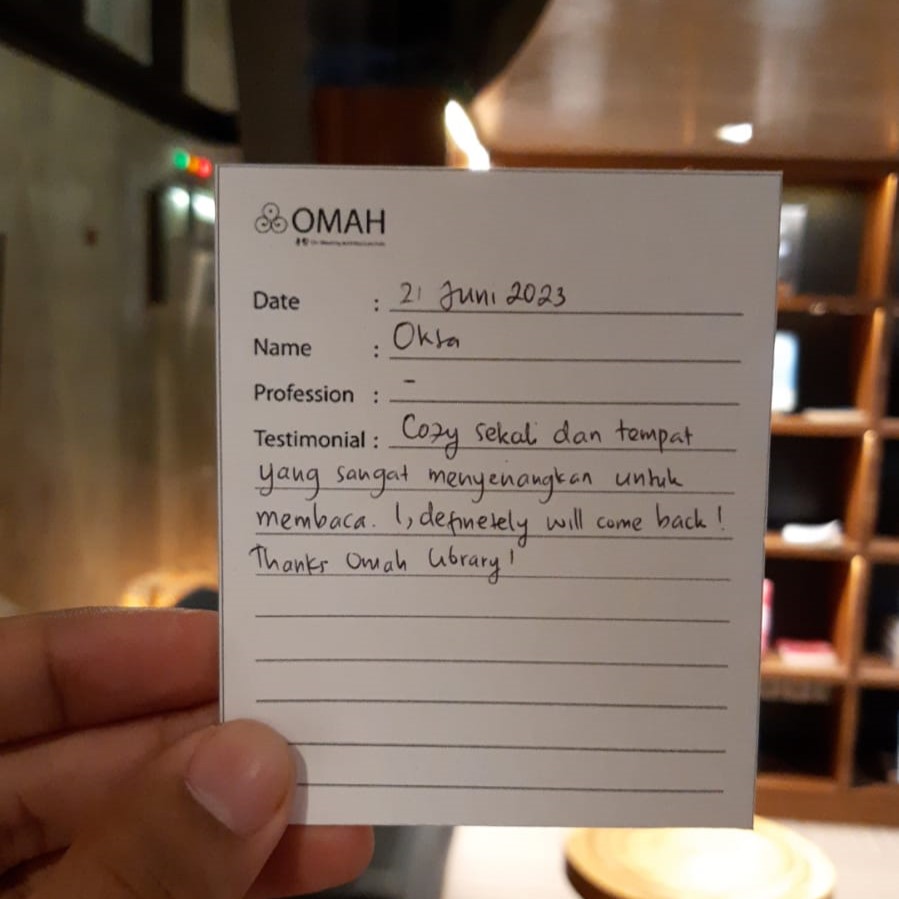 OMAH
Date : 21 Juni 2023
Name : Oksa
Profession : -
Testimonial : Cozy sekali dan tempat
yang sangat menyenangkan untuk
membaca. I, definetely will come back!
Thanks Omah Library!